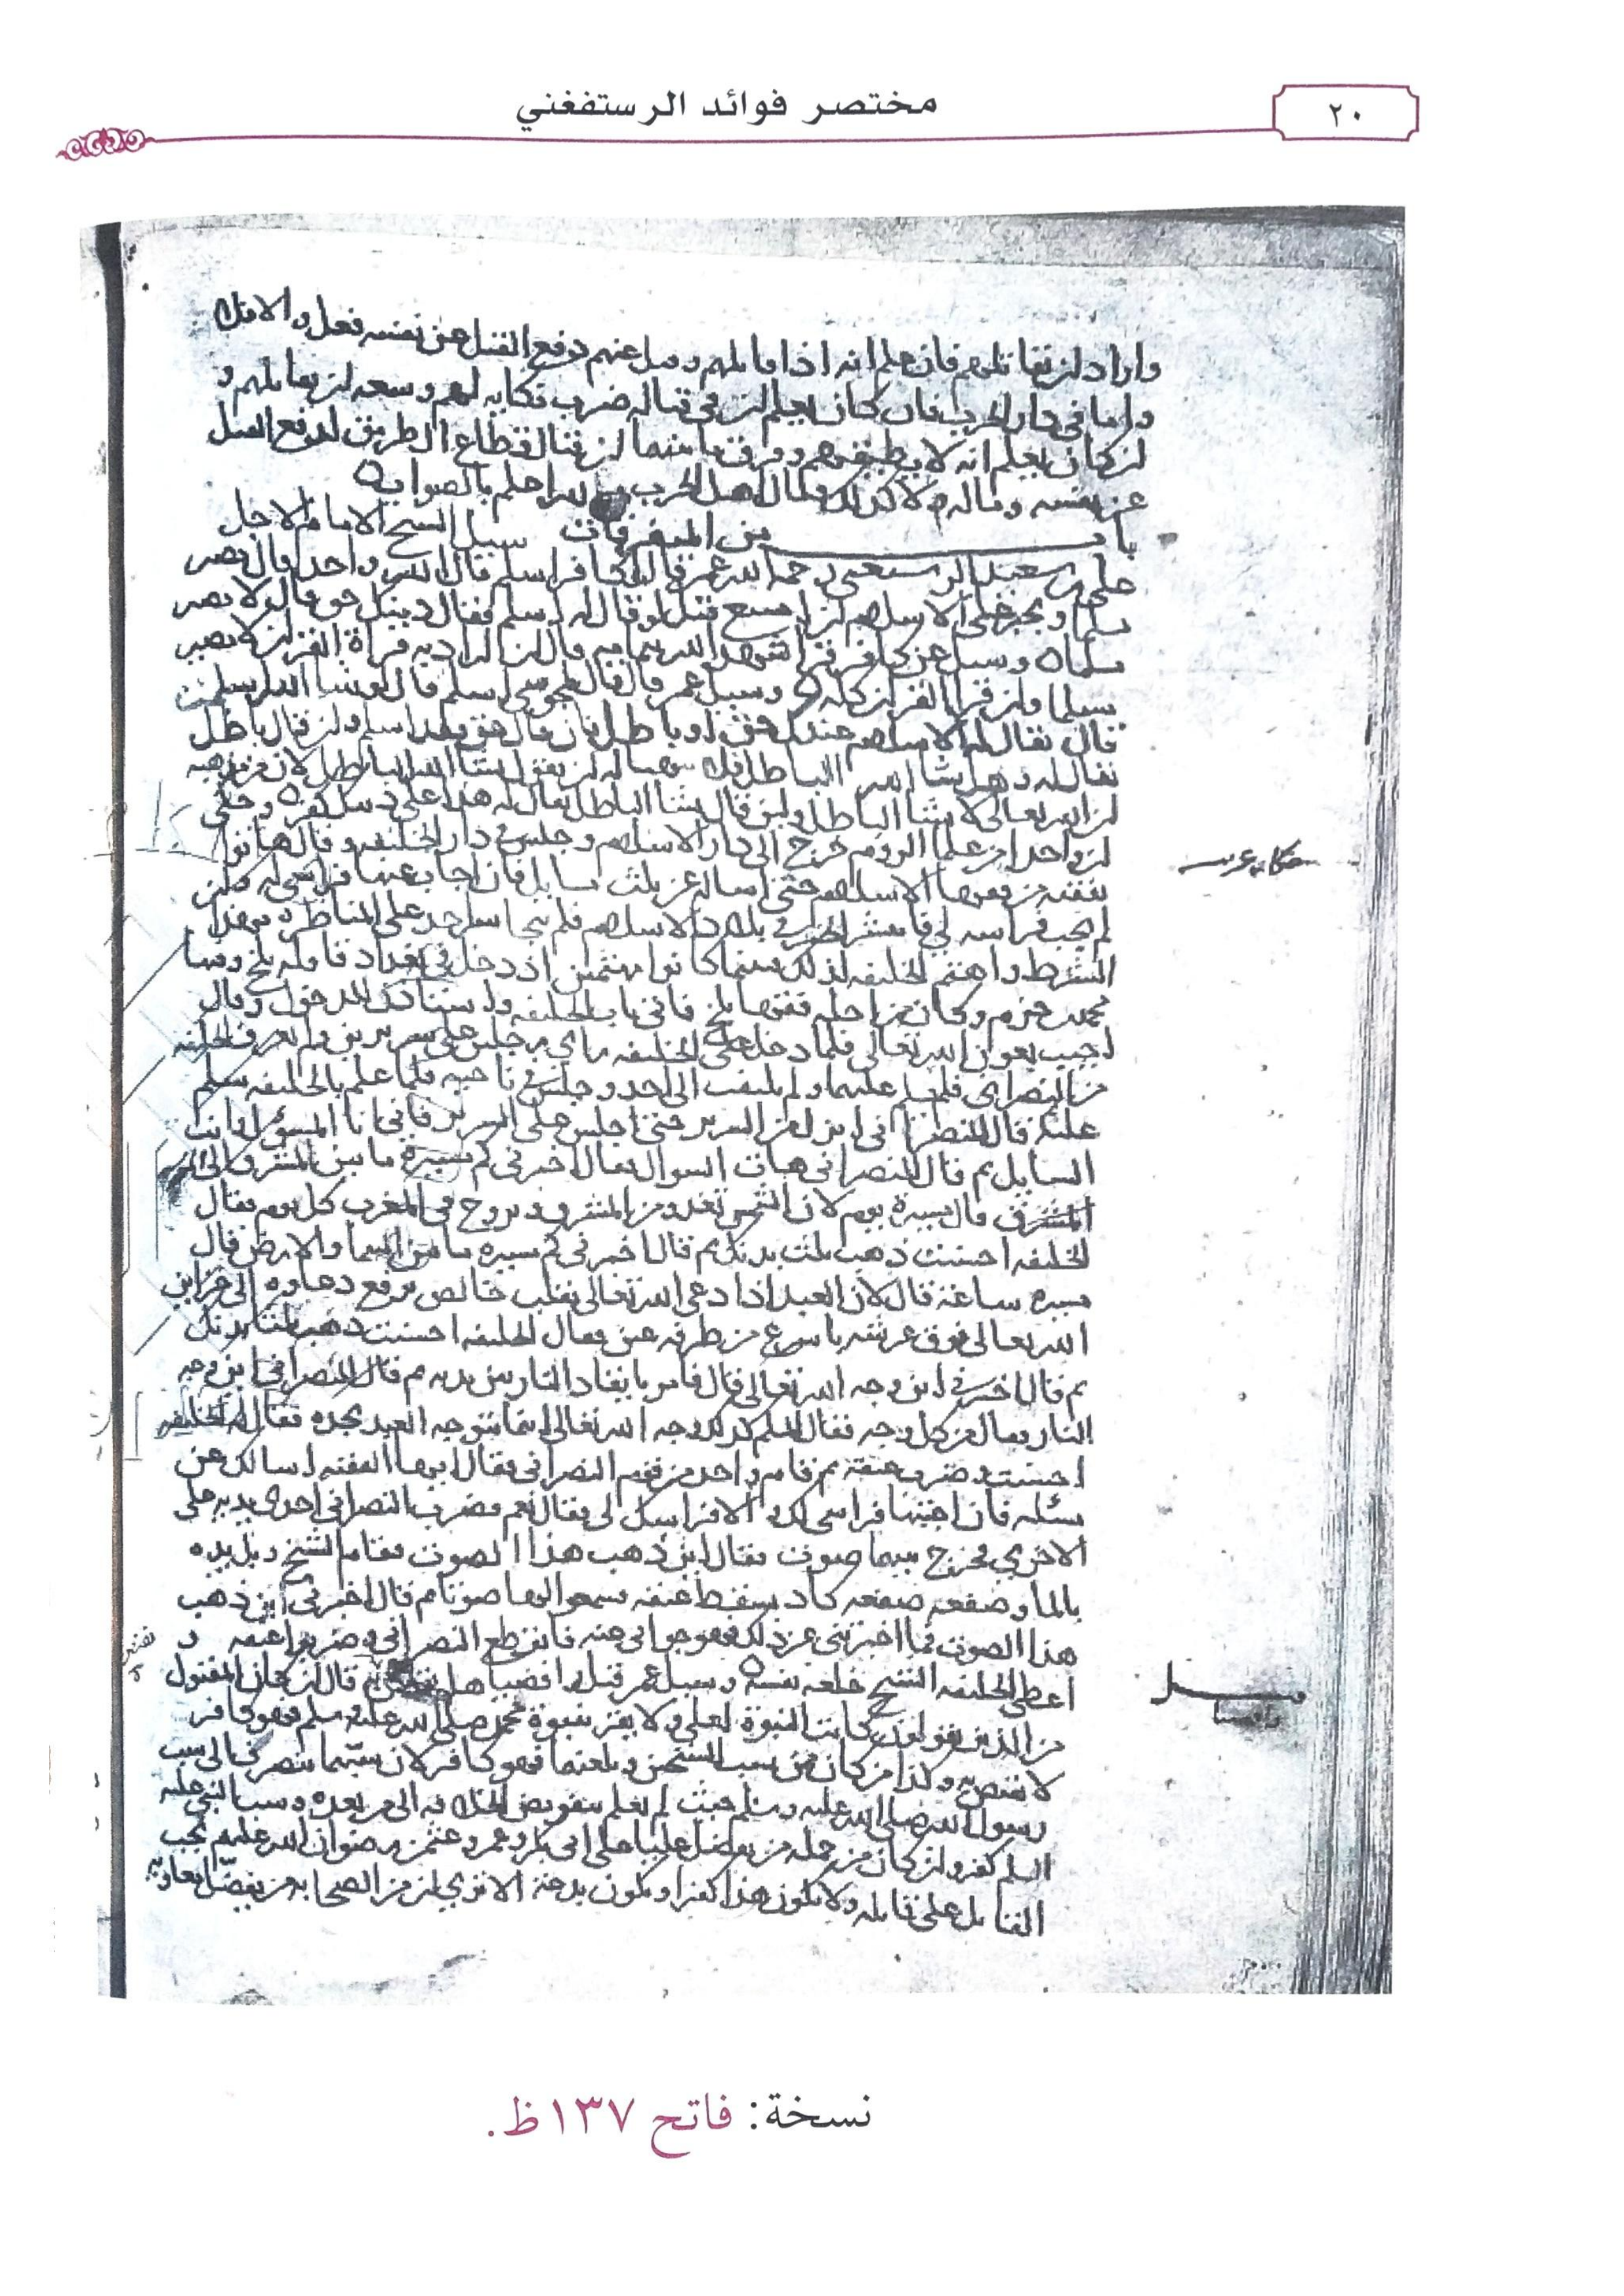 مختصر فوائد الرستفغني
٢٠
واراد لن يقاتلهم فان علم انه اذا قاتلهم وقتل منهم دفع القتل عن نفسه فعل والا فلا
واما في دار الحرب فان كان يعلم لن في قتاله ضرب نكايه لهم وسعه لن يقاتلهم و
لن كان يعلم انه لا يطيقهم وفرق ما بينهما لن قتال قطاع الطريق لدفع القتل
عن نفسه وماله ولا كذلك قتال اهل الحرب والله اعلم بالصواب
باب من المتفرقات سيل الشيخ الامام الاجل
علي بن سعيد الرستغفني رحمه الله عمن قال لكافر اسلم قال الله واحد قال يصير
مسلما ويجبر على الاسلام لن امتنع قتل لو قال له اسلم فقال دينك حق قال لا يصير
مسلما وسيل عن كافر قرا شهد الله بتمامه قال لن اراد به قراة القران لا يصير
مسلما ولن قرا القران كله وسيل عمن قال قال لمجوسي اسلم قال لو شا الله لسلمت
قال يقال له الاسلام عندك حق او باطل فان قال حق فقد اسلم ولن قال باطل
يقال له وهل يشا الله الباطل
لن الله تعالى لا يشا الباطل ولن قال يشا الباطل يقال له هذا على وحكي
لن واحدا من علما الروم خرج الى دار الاسلام وجلس في دار الخليفه وقال هاتوا
فقيه من فقها الاسلام حتى اساله عن ثلث مسايل فان اجاب عنها
لم يجب في بلاد الاسلام فلم يتجاسر احد على المناظره بهذا
الشرط واهتم الخليفه لذلك فبينما كانوا مهتمين اذ دخل في بغداد قافله بلخ وفيها
محمد وكان من اجله فقها بلخ فاتى باب الخليفه واستاذن للدخول وقال
اجيب بعون الله تعالى فلما دخل على الخليفه راى جلس على سريرين ولم يعرف الخليفه
من النصراني فلم يسلم عليهما ولم يلتفت الى احد وجلس في ناحيه فلما علم بالخليفه سلم
عليه قال للنصراني انزل من السرير حتى اجلس على السرير فاني انا المسؤل وانت
السايل ثم قال للنصراني هات السوال فقال اخبرني كم مسيرة ما بين المشرق الى
المشرق قال مسيرة يوم لان الشمس تغدو من المشرق وتروح في المغرب كل يوم فقال
الخليفه احسنت ذهب ثلث بدنك ثم قال اخبرني كم مسيره ما بين السما والارض قال
مسيره ساعة قال لان العبد اذا دعى الله تعالى بقلب خالص يرفع دعاوه الى خزاين
الله تعالى فوق عرشه باسرع من طرفه عين فقال الخليفه احسنت ذهب ثلثا بدنك
ثم قال اخبرني اين وجه الله تعالى قال فامر بايقاد النار بين يديه ثم قال للنصراني اين وجه
النار فقال من كل وجه فقال المسلم كذلك وجه الله تعالى اينما يتوجه العبد يجده فقال له الخليفه
احسنت وضرب عنقه ثم قام واحد من قوم النصراني فقال ايها الفقيه اسالك عن
مسئله فان اجبتها لك والا لي فقال نعم فضرب النصراني احدى يديه على
الاخرى فخرج بينهما صوت فقال اين ذهب هذا الصوت فقام الشيخ وبل يده
بالما وصفعه صفعه كاد يسقط عنقه فسمعوا لها صوتا ثم قال اخبرني اين ذهب
هذا الصوت فما اخبرتني عن ذلك فهو جوابي عنه فانقطع النصراني وضربوا عنقه و
اعطى الخليفه الشيخ خلعه نفسه وسيل عمن قتل رافضيا هل قال لن كان المقتول
من الذين يقولون كانت النبوة لعلي ولا يقر بنبوة محمد صلى الله عليه وسلم فهو كافر
لا وكذا من كان ممن يسب الشيخين ويلعنهما فهو كافر لان سبهما ينصرف الى سب
رسول الله صلى الله عليه وسلم حيث لم يعلم بتفويض الخلافه الى من بعده وسب النبي عليه
السلم كفر ولن كان من جمله من يفضل عليا على ابي بكر وعمر وعثمن رضوان الله عليهم يجب
القتل على قاتله ولا يكون هذا كفرا ويكون بدعة الا ترى لن من الصحابه من يفضل معاويه
نسخة: فاتح ١٣٧ظ.